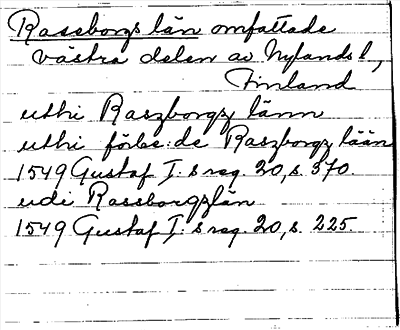 Raseborgs län omfattade
västra delen av Nylands l.,
Finland
uthi Raszborgz länn
uthi förbe:de Raszborgz lään
1549 Gustaf I:s reg. 20, s. 370.
udi Rassborgzlän
1549 Gustaf I:s reg. 20, s. 225.